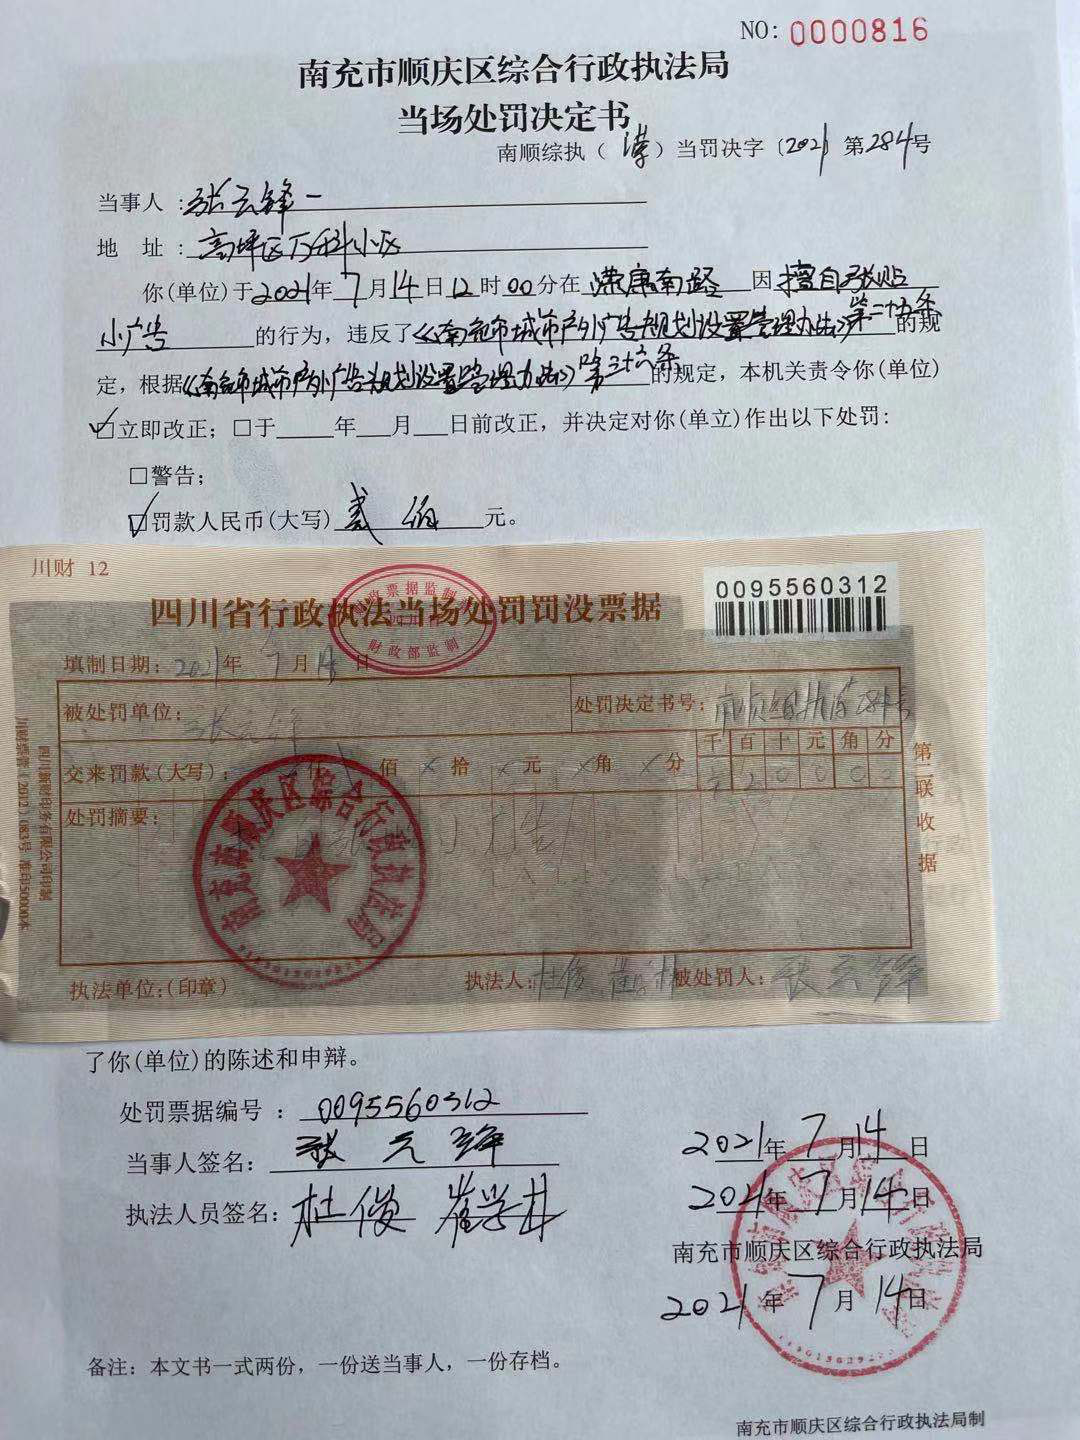 NO: 0000816
南充市顺庆区综合行政执法局
当场处罚决定书
南顺综执（ ）当罚决字〔2021 第284号
当事人：张云锋
地 址：高坪区万科小区
你(单位)于2021年7月14日12时00分在 康南路 因 擅自张贴
小广告 的行为，违反了《南充市城市户外广告规划设置管理办法》第二十五条 的规
定，根据《南充市城市户外广告规划设置管理办法》第三十六条 的规定，本机关责令你(单位)
☑立即改正；□于 年 月 日前改正，并决定对你(单立)作出以下处罚:
□警告；
☑罚款人民币(大写) 贰佰 元。
川财 12
0095560312
四川省行政执法当场处罚罚没票据
财政票据监制
财政部监制
填制日期：2021年7月 日
被处罚单位：张云锋
处罚决定书号：
交来罚款(大写)： 仟 佰 拾 元 角 分
千 百 十 元 角 分
2 0 0 0 0
处罚摘要：
南充市顺庆区综合行政执法局
第二联收据
执法单位:(印章)
执法人：杜俊 崔学林
被处罚人：张云锋
了你(单位)的陈述和申辩。
处罚票据编号 ：0095560312
当事人签名：张云锋
2021年7月14日
执法人员签名：杜俊 崔学林
2021年7月14日
南充市顺庆区综合行政执法局
2021年7月14日
备注：本文书一式两份，一份送当事人，一份存档。
南充市顺庆区综合行政执法局制